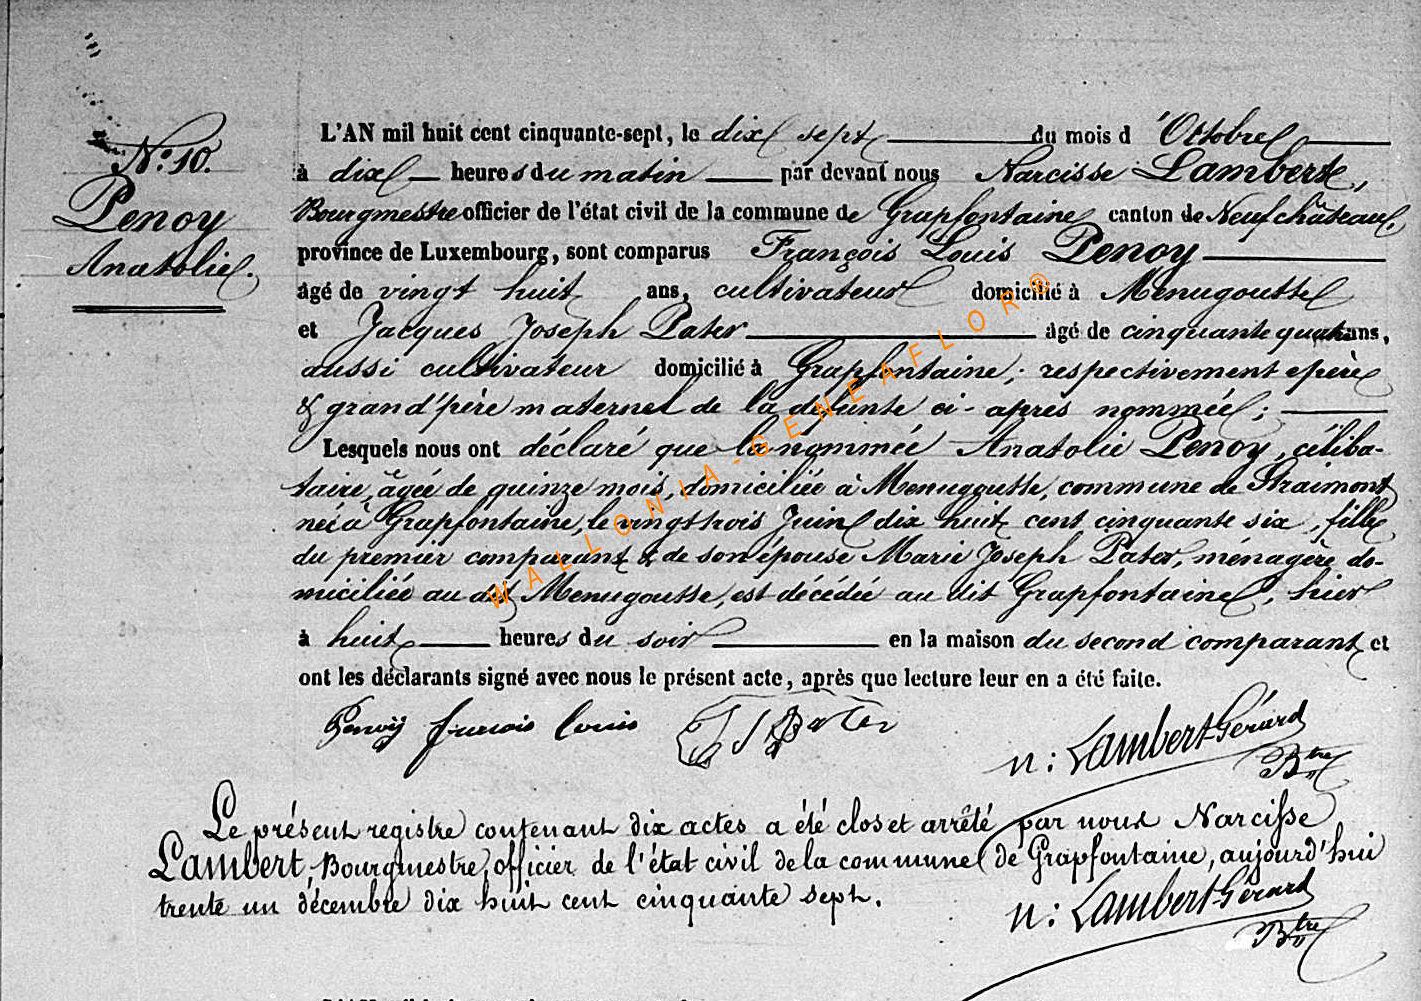 N° 10.
Penoy
Anatolie.
L'AN mil huit cent cinquante-sept, le dix sept du mois d'Octobre
à dix heures du matin par devant nous Narcisse Lambert,
Bourgmestre officier de l'état civil de la commune de Grapfontaine canton de Neufchâteau,
province de Luxembourg, sont comparus François Louis Penoy
âgé de vingt huit ans, cultivateur domicilié à Menugoutte
et Jacques Joseph Pater âgé de cinquante quatre ans,
aussi cultivateur domicilié à Grapfontaine; respectivement père
& grand'père maternel de la défunte ci-après nommée;
Lesquels nous ont déclaré que la nommée Anatolie Penoy, céliba-
taire, âgée de quinze mois, domiciliée à Menugoutte, commune de Straimont
née à Grapfontaine, le vingt trois Juin dix huit cent cinquante six, fille
du premier comparant & de son épouse Marie Joseph Pater, ménagère do-
miciliée au dit Menugoutte, est décédée au dit Grapfontaine, hier
à huit heures du soir en la maison du second comparant et
ont les déclarants signé avec nous le présent acte, après que lecture leur en a été faite.
Penoy francois Louis J J Pater n: Lambert-Gérard
Btre
Le présent registre contenant dix actes a été clos et arrêté par nous Narcisse
Lambert, Bourgmestre, officier de l'état civil de la commune de Grapfontaine, aujourd'hui
trente un décembre dix huit cent cinquante sept.
n: Lambert-Gérard
Btre
WALLONIA-GENEAFLOR®